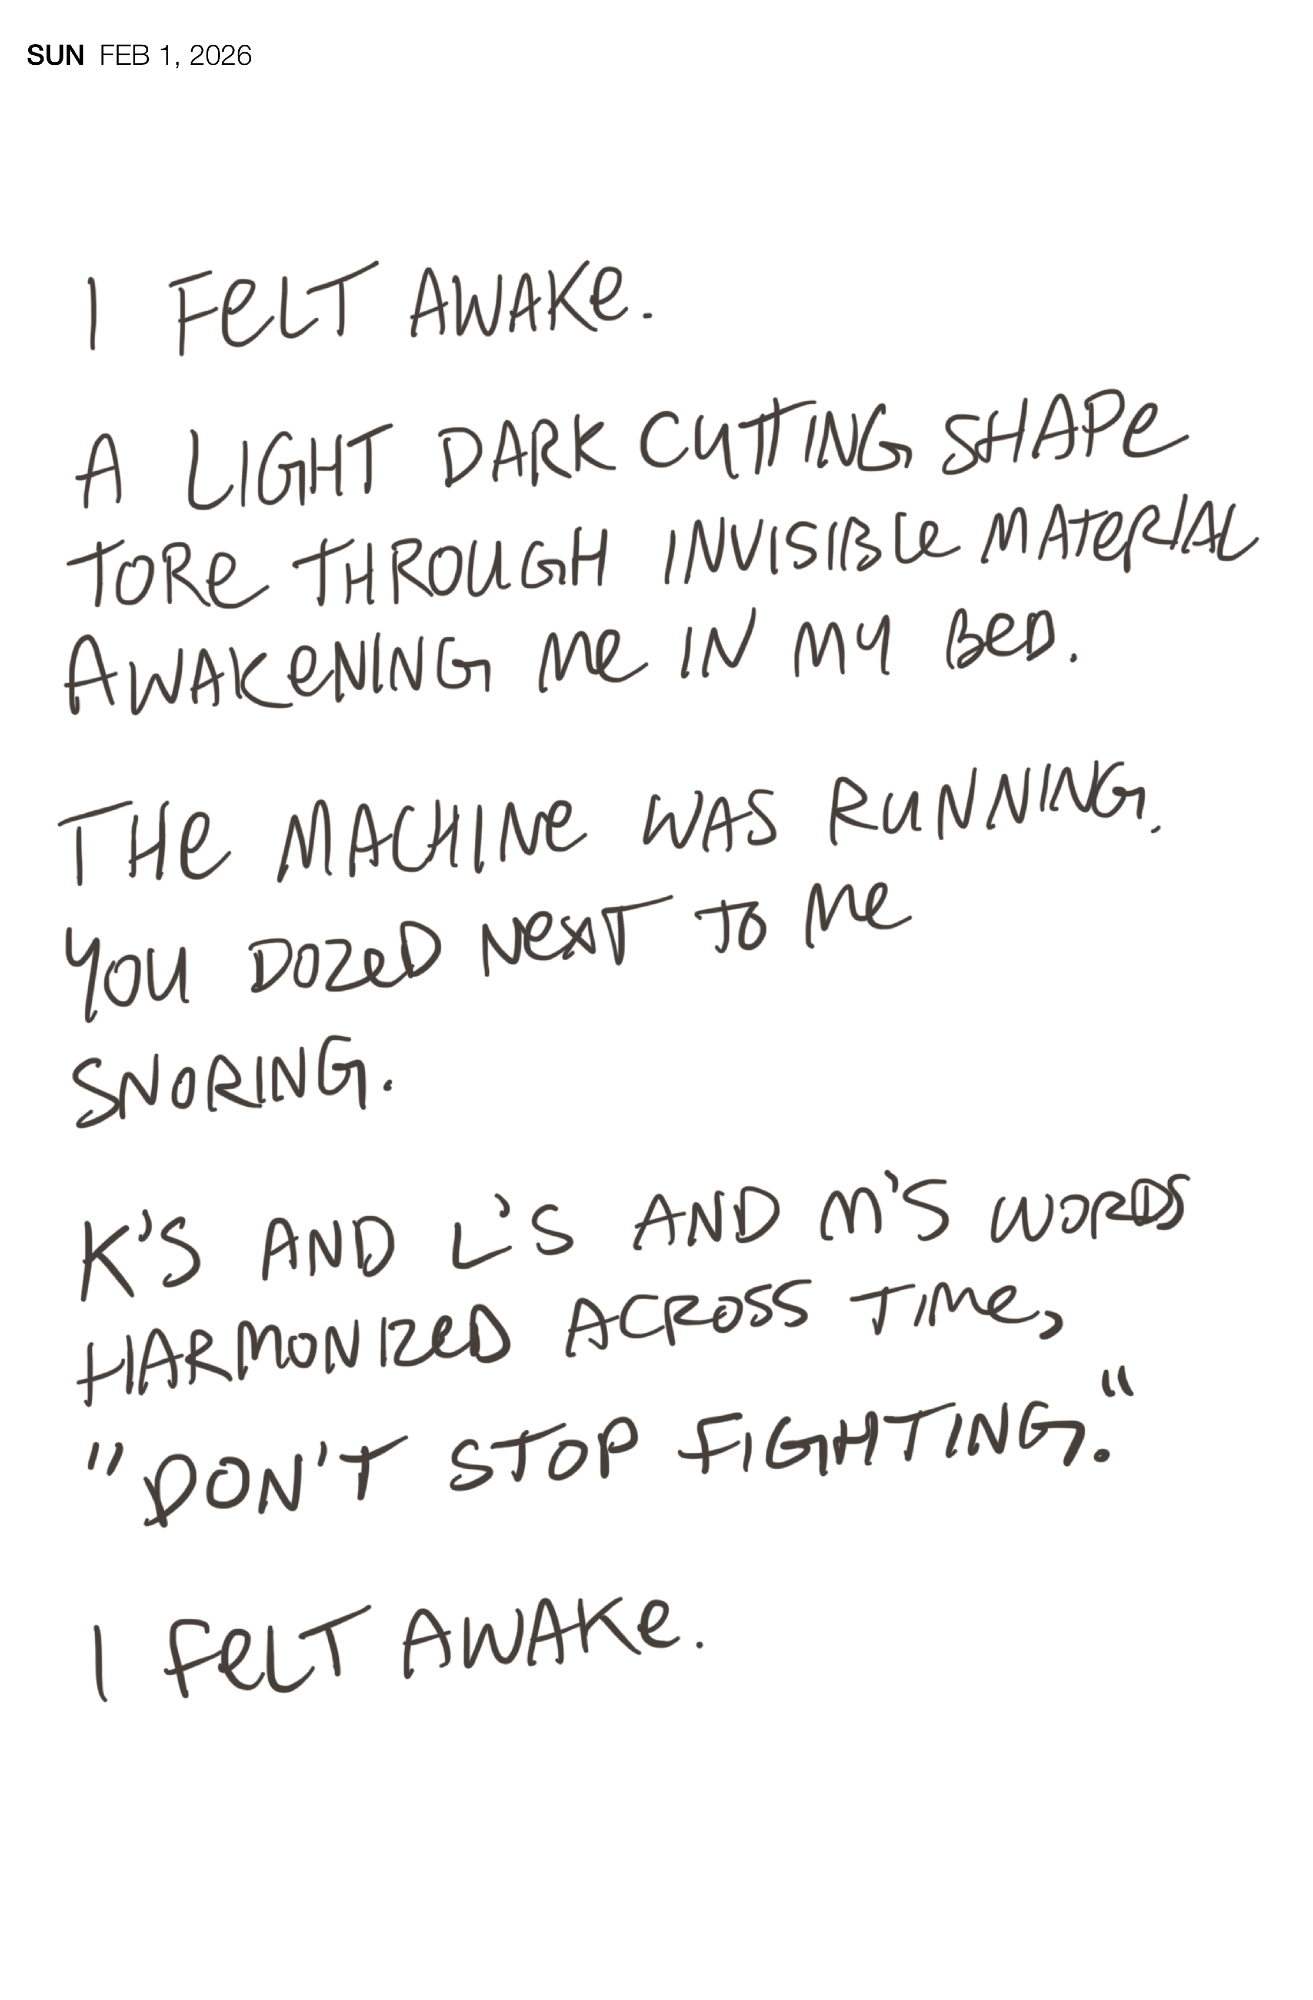 SUN FEB 1, 2026
I FELT AWAKE.
A LIGHT DARK CUTTING SHAPE
TORE THROUGH INVISIBLE MATERIAL
AWAKENING ME IN MY BED.
THE MACHINE WAS RUNNING.
YOU DOZED NEXT TO ME
SNORING.
K'S AND L'S AND M'S WORDS
HARMONIZED ACROSS TIME,
"DON'T STOP FIGHTING."
I FELT AWAKE.